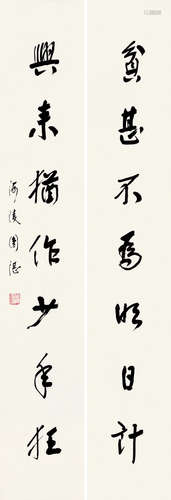 貧甚不為明日計
興來猶作少年狂
海陵周湛